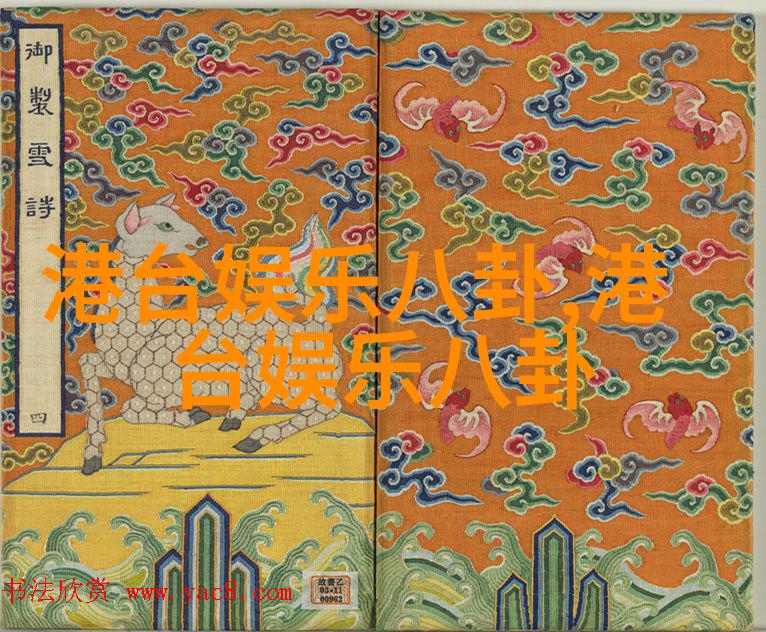 御製雪詩
四
港台娱乐八卦,港
台娱乐八卦
书法欣赏 www.yac8.com
故書乙
03•11
00962